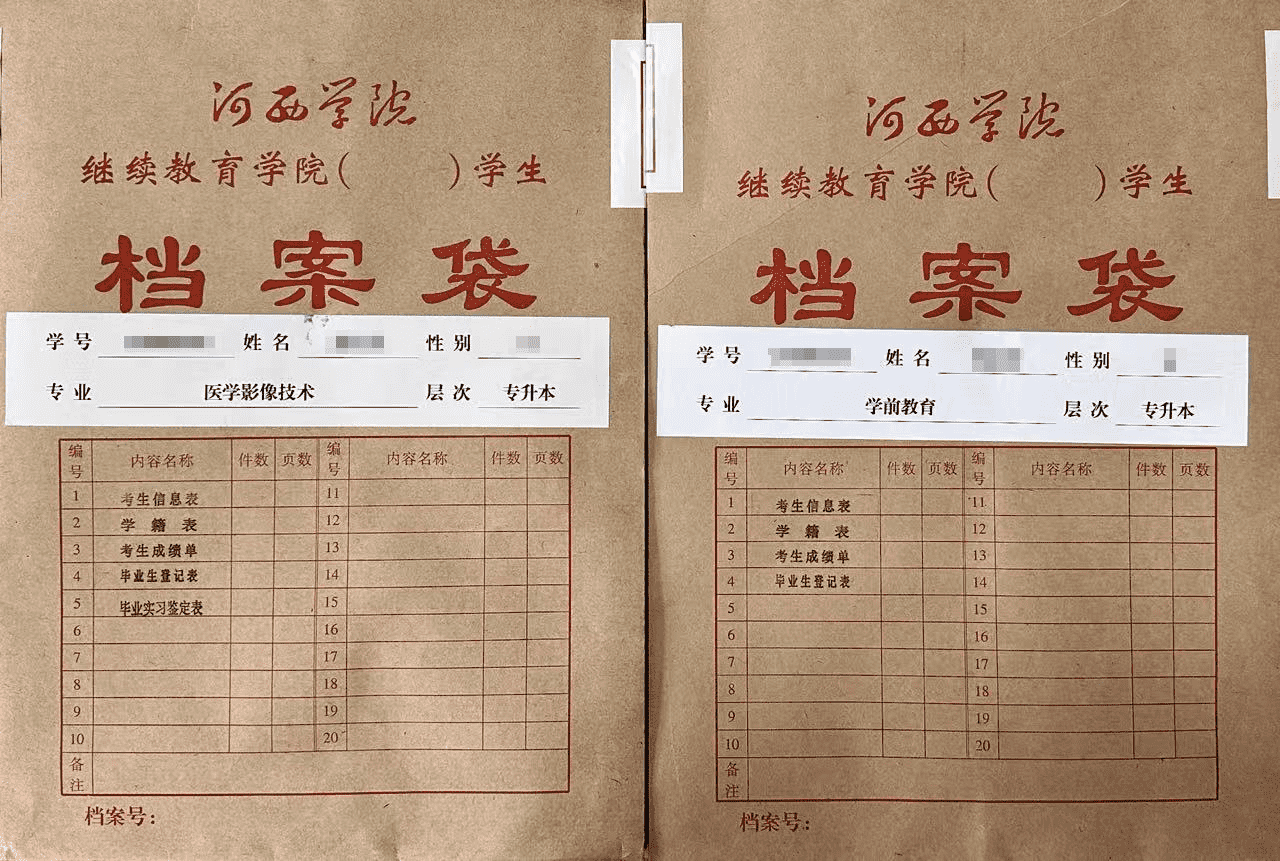 河西学院
继续教育学院（ ）学生
档案袋
学号 姓名 性别
专业 医学影像技术 层次 专升本
编号 内容名称 件数 页数 编号 内容名称 件数 页数
1 考生信息表 11
2 学籍表 12
3 考生成绩单 13
4 毕业生登记表 14
5 毕业实习鉴定表 15
6 16
7 17
8 18
9 19
10 20
备注
档案号：
河西学院
继续教育学院（ ）学生
档案袋
学号 姓名 性别
专业 学前教育 层次 专升本
编号 内容名称 件数 页数 编号 内容名称 件数 页数
1 考生信息表 11
2 学籍表 12
3 考生成绩单 13
4 毕业生登记表 14
5 15
6 16
7 17
8 18
9 19
10 20
备注
档案号：